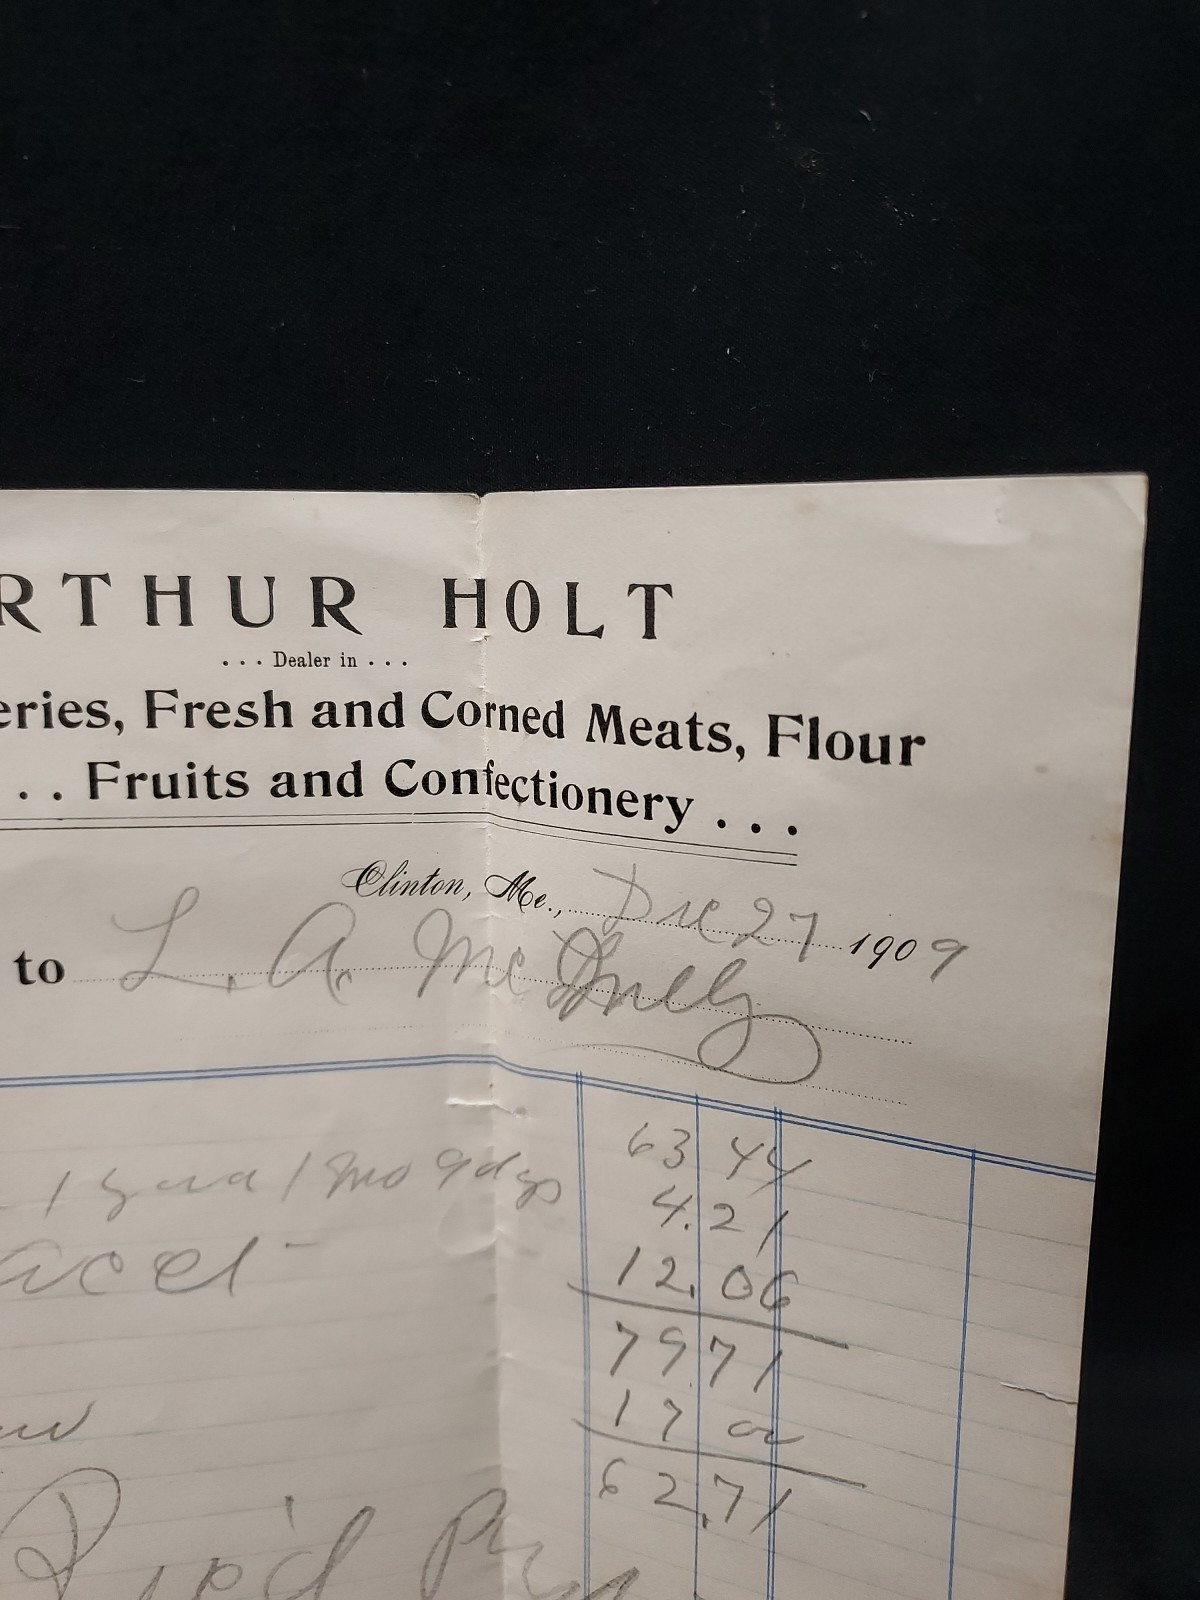 RTHUR HOLT
... Dealer in ...
eries, Fresh and Corned Meats, Flour
.. Fruits and Confectionery ...
Clinton, Me., Dec 27 1909
to L. A. Mc
63 44
1 year 1 Mo 9 dys 4.21
acct - 12.06
79 71
17 00
62.71
Rec'd